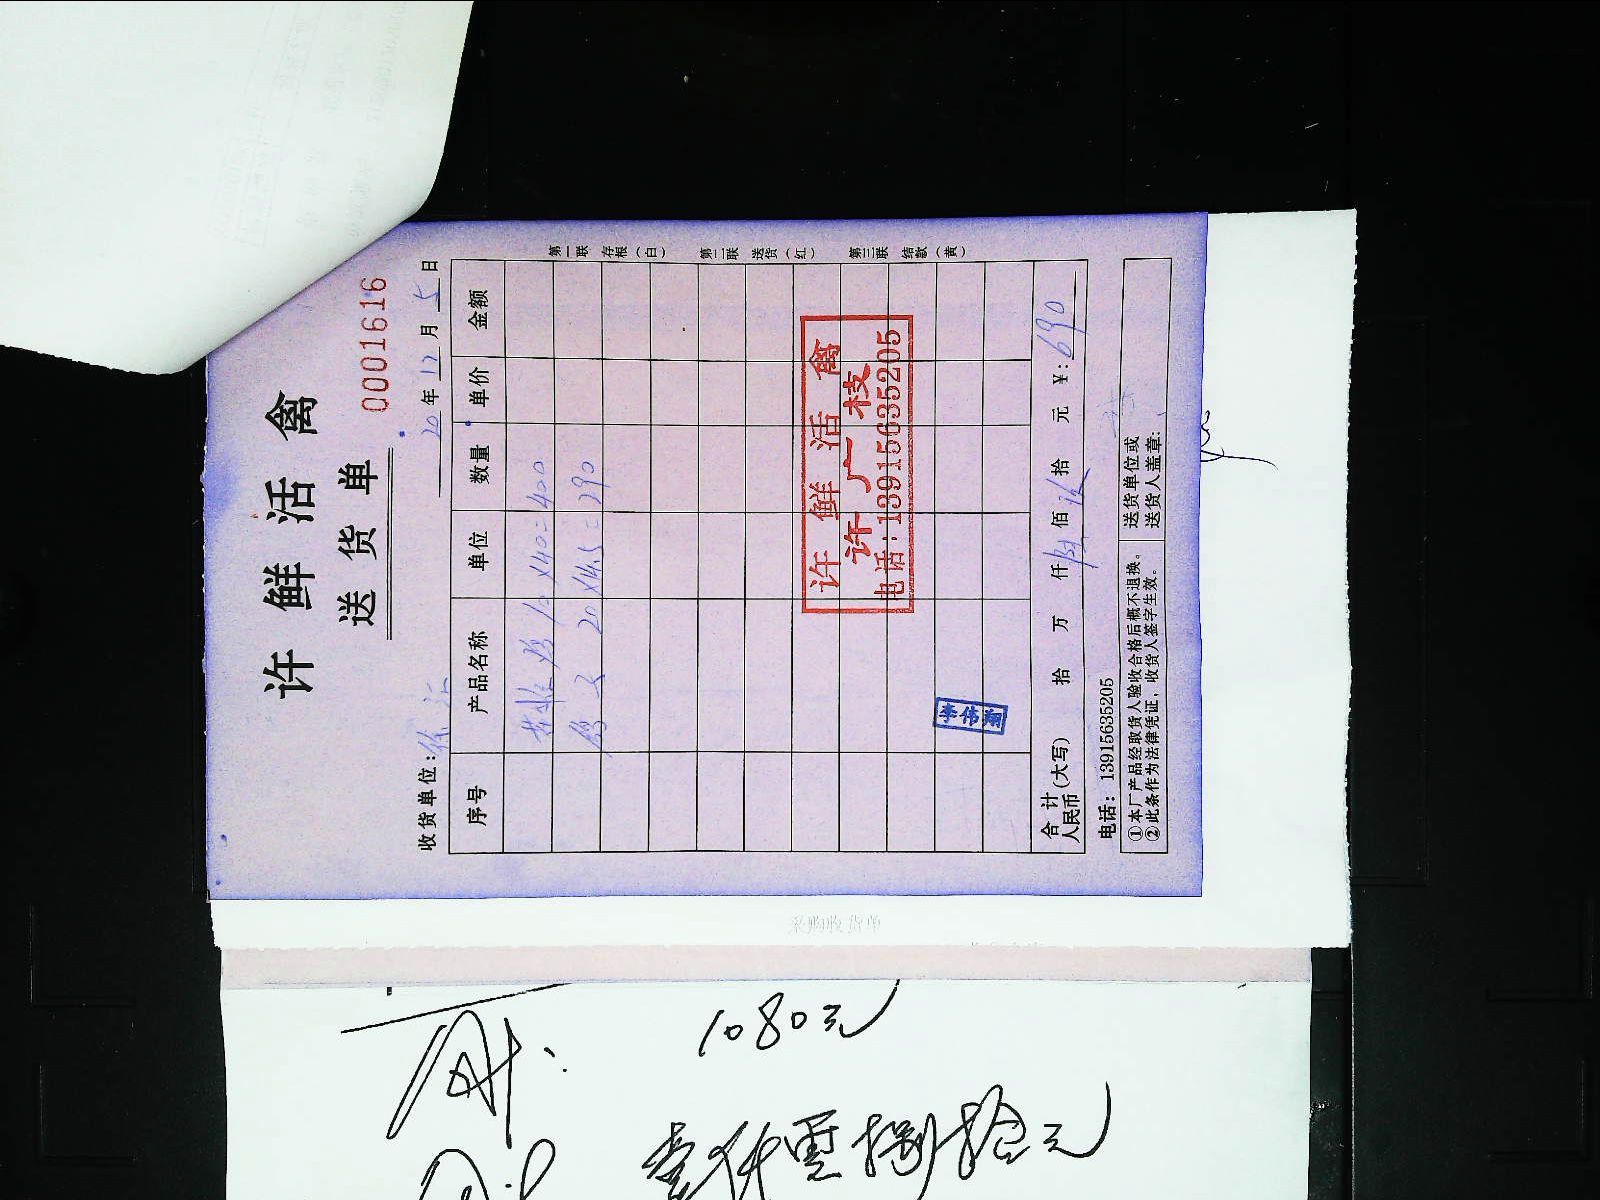 许鲜活禽
送货单
0001616
20年12月5日
收货单位:徐汇
序号 产品名称 单位 数量 单价 金额
鸡 10×40=400
鸡 20×14.5=290
第一联 存根(白) 第二联 送货(红) 第三联 结款(黄)
许鲜活禽
许广枝
电话:13915635205
李伟翔
合计
人民币(大写) 拾 万 仟 陆 佰 玖 拾 元 ¥:690
电话:13915635205
①本厂产品经取货人验收合格后概不退换。
②此条作为法律凭证,收货人签字生效。
送货单位或
送货人盖章:
采购收货单
1080元
壹仟零捌拾元